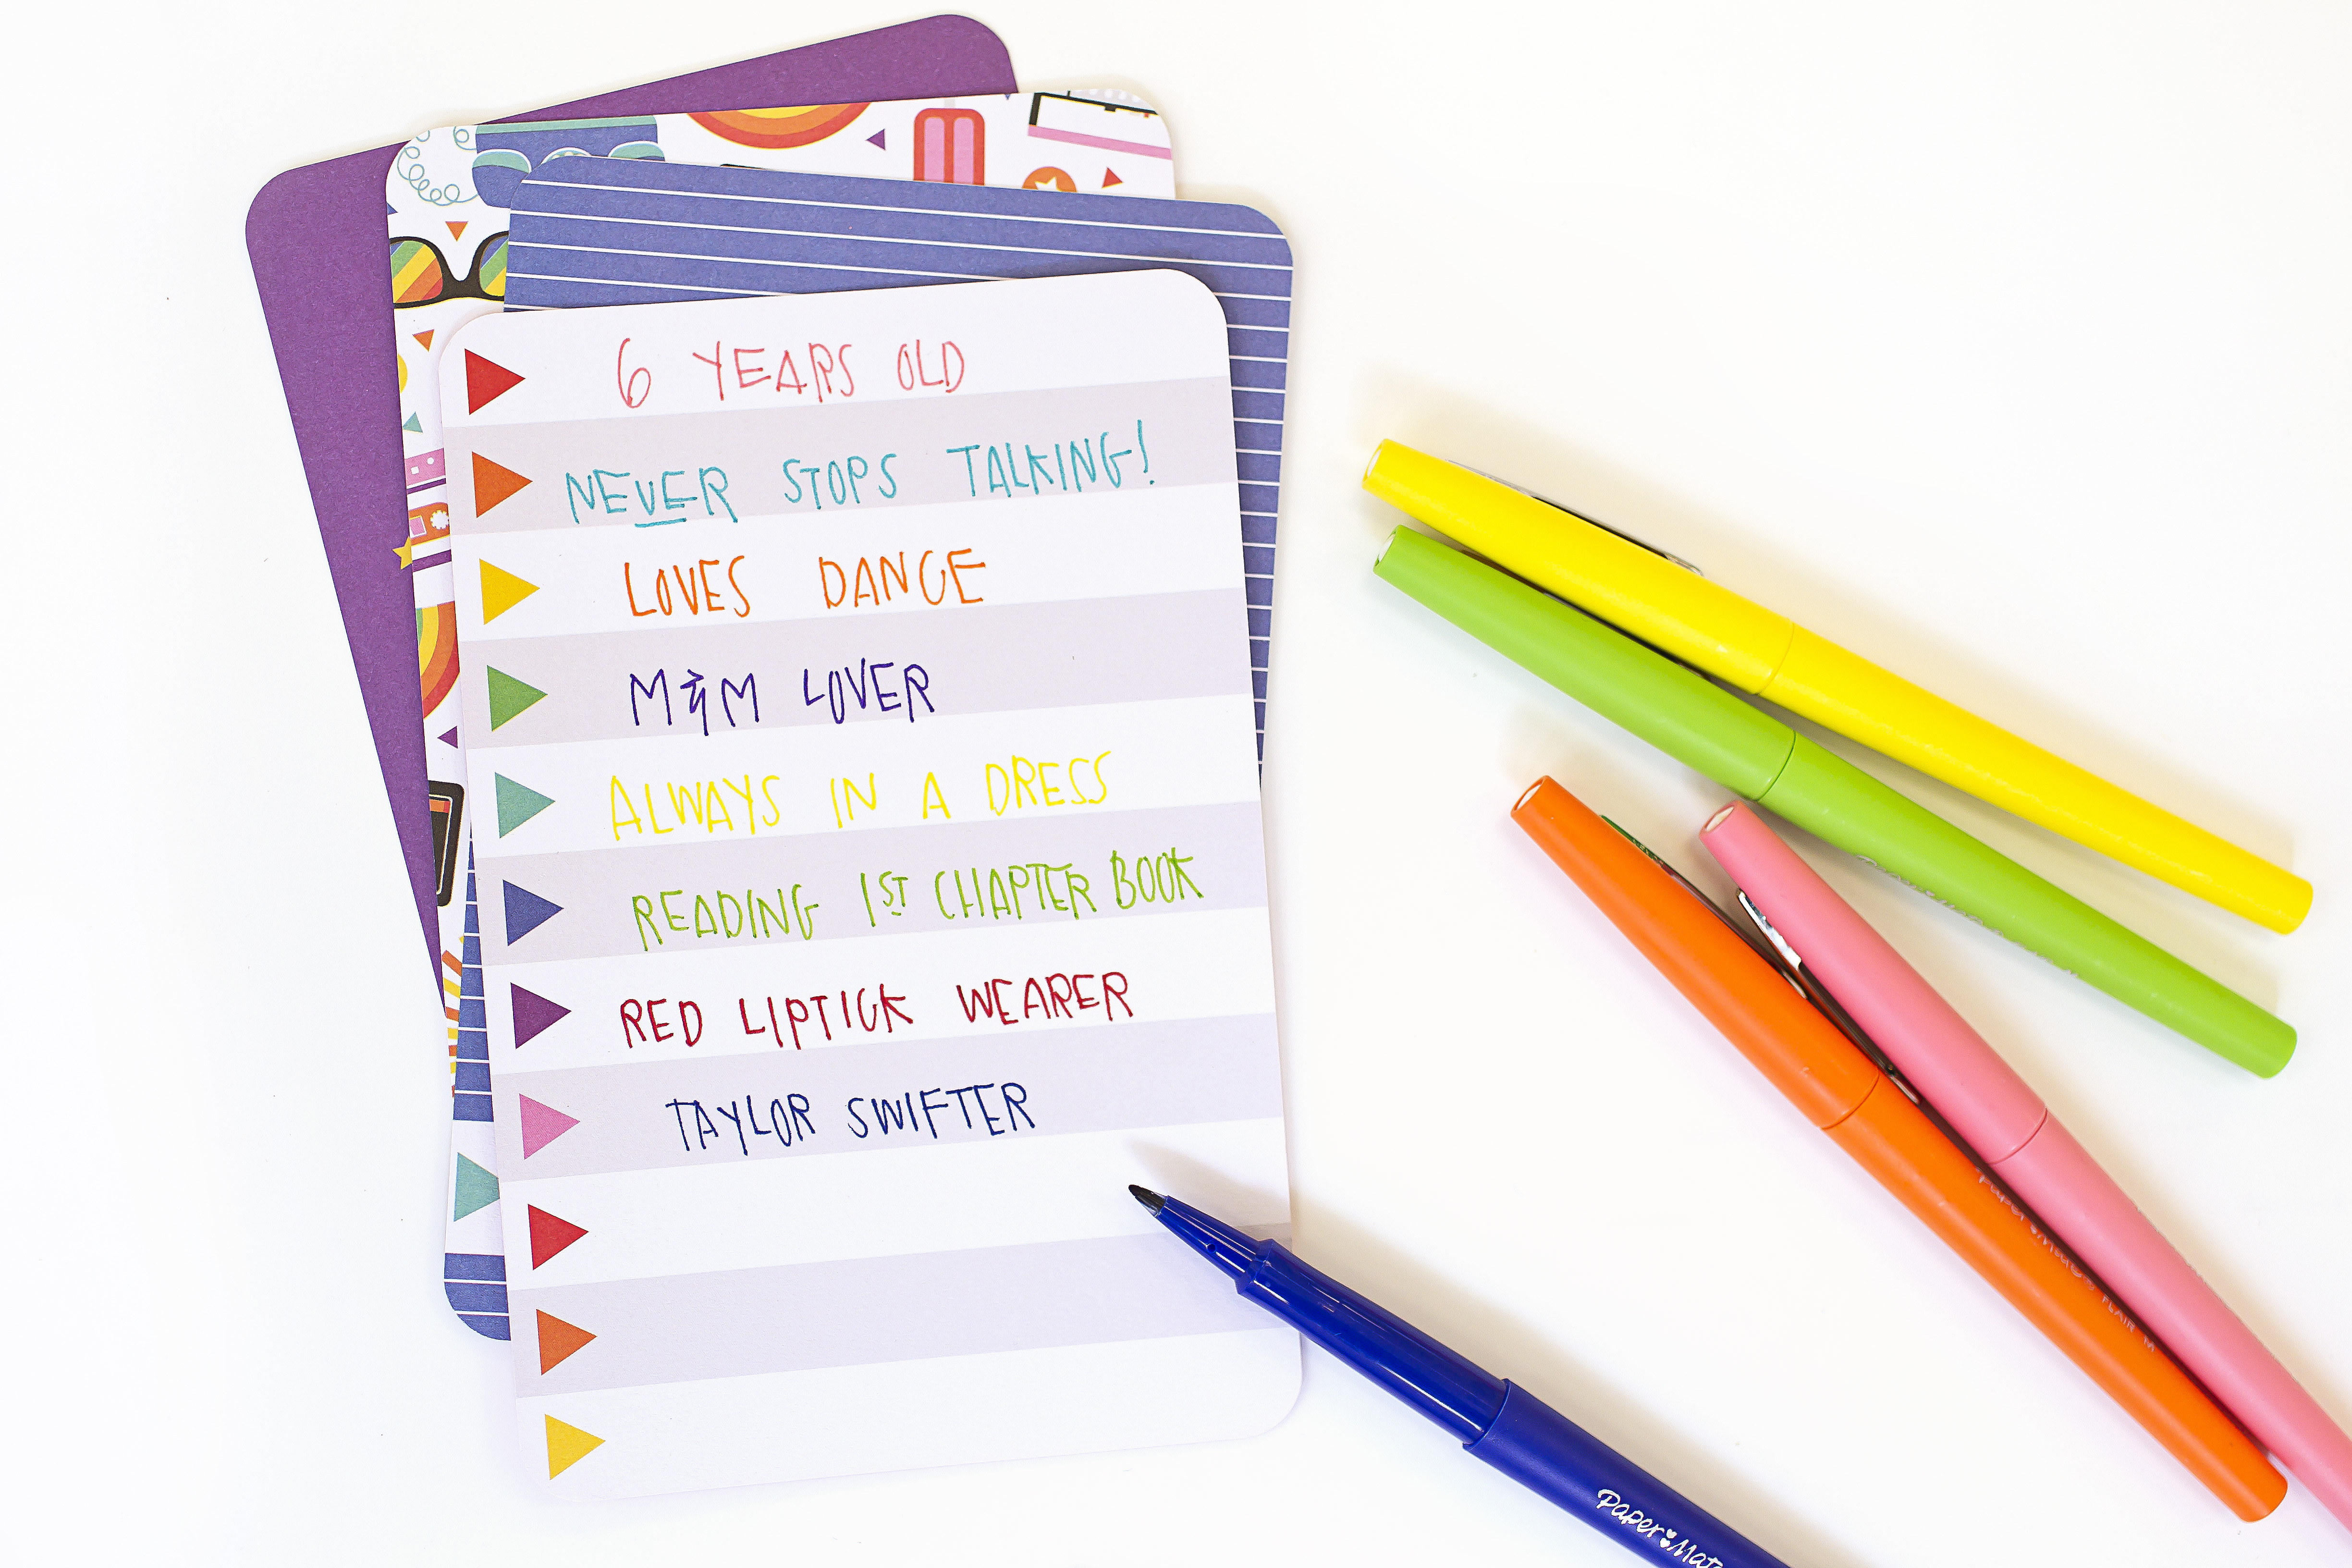 6 YEARS OLD
NEVER STOPS TALKING!
LOVES DANCE
M&M LOVER
ALWAYS IN A DRESS
READING 1ST CHAPTER BOOK
RED LIPTICK WEARER
TAYLOR SWIFTER
Paper Mate
Paper Mate FLAIR M